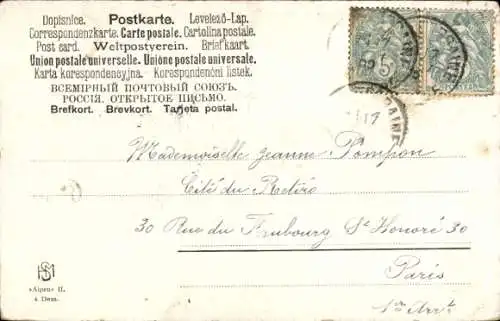 Dopisnice. Postkarte. Levelező-Lap.
Correspondenzkarte. Carte postale. Cartolina postale.
Post card. Weltpostverein. Briefkaart.
Union postale universelle. Unione postale universale.
Karta korespondencyjna. Korespondenční lístek.
ВСЕМІРНЫЙ ПОЧТОВЫЙ СОЮЗЪ.
РОССІЯ. ОТКРЫТОЕ ПИСЬМО.
Brefkort. Brevkort. Tarjeta postal.
5
Mademoiselle Jeanne Pompon
Cité du Retiro
30 Rue du Faubourg St Honoré 30
Paris
«Alpen» II.
4 Dess.